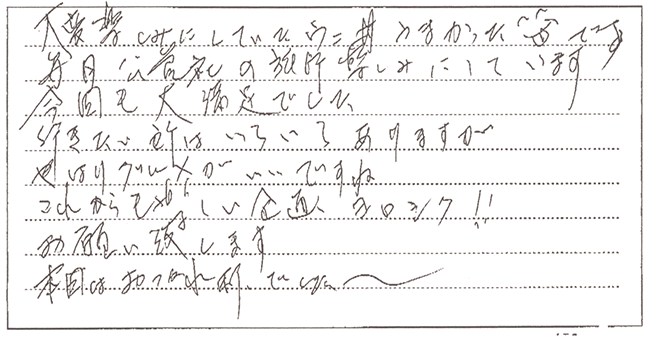 大変楽しみにしていたうに丼うまかったです
毎月 の旅行楽しみにしています
今回も大満足でした
行きたい所はいろいろありますが
やはりグルメがいいですね
これからも楽しい企画、ヨロシク!!
お願い致します
本日はおつかれ様でした〜